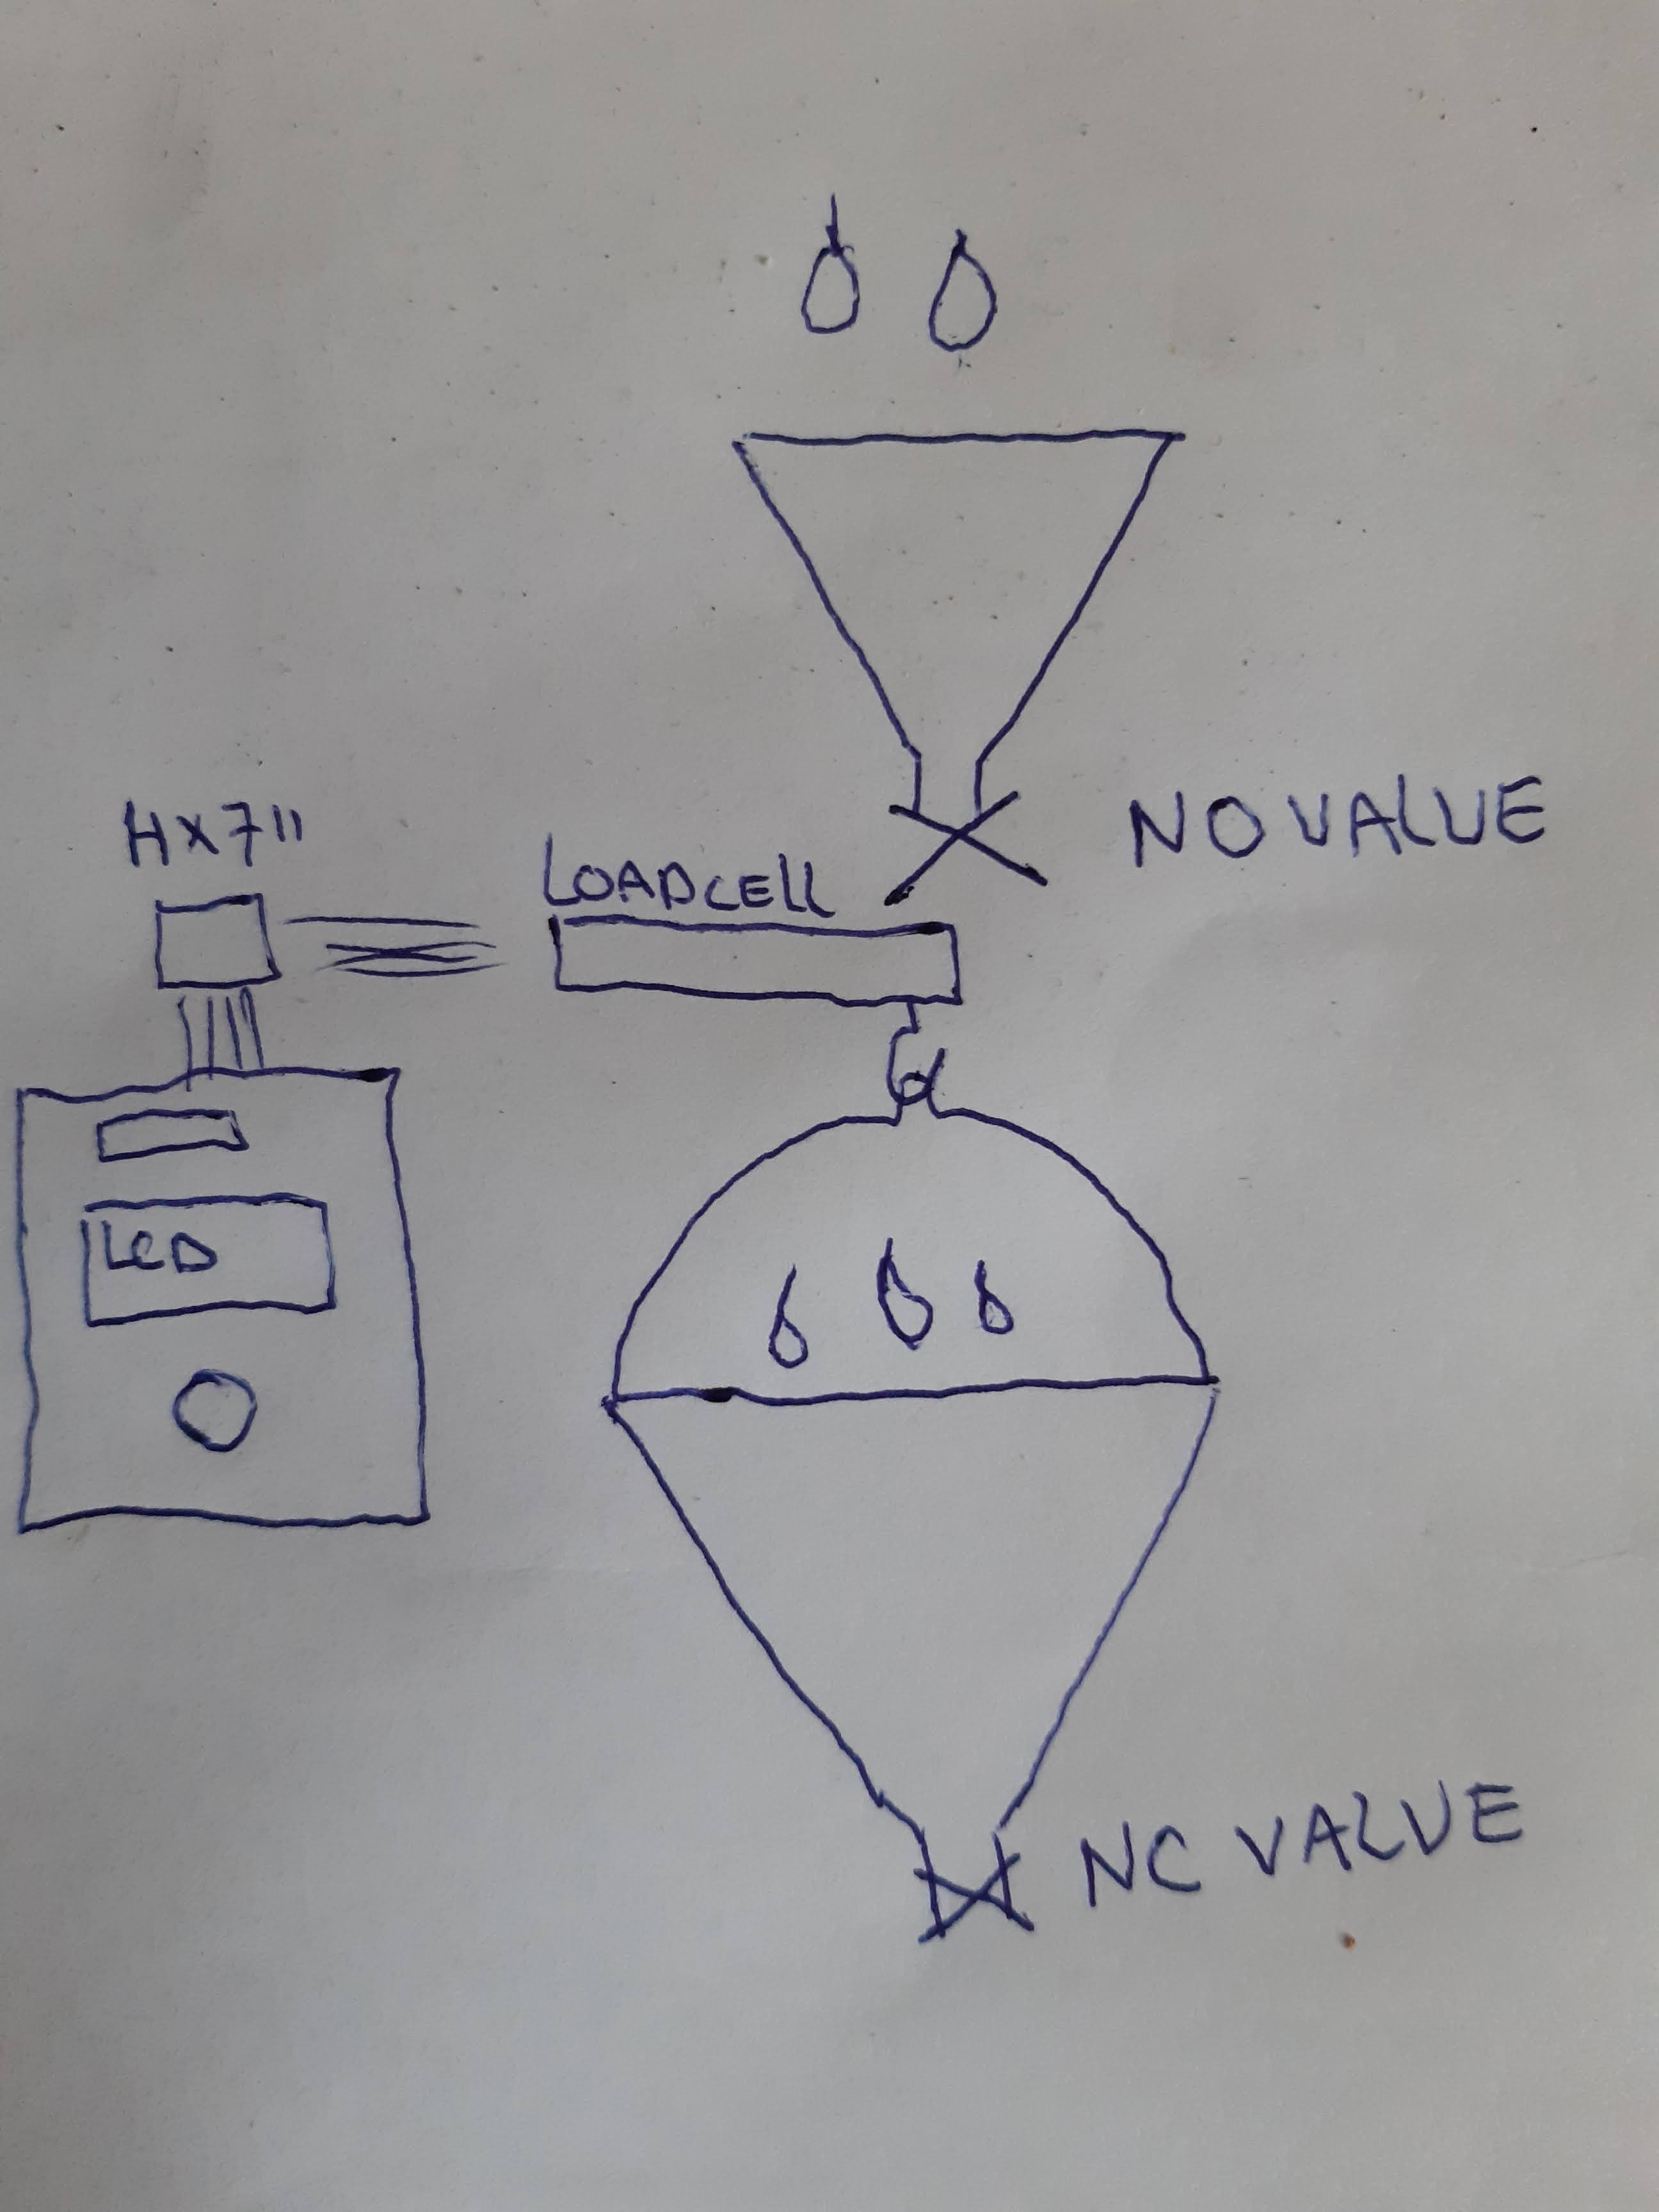 NO VALUE
HX711
LOADCELL
LCD
NC VALVE